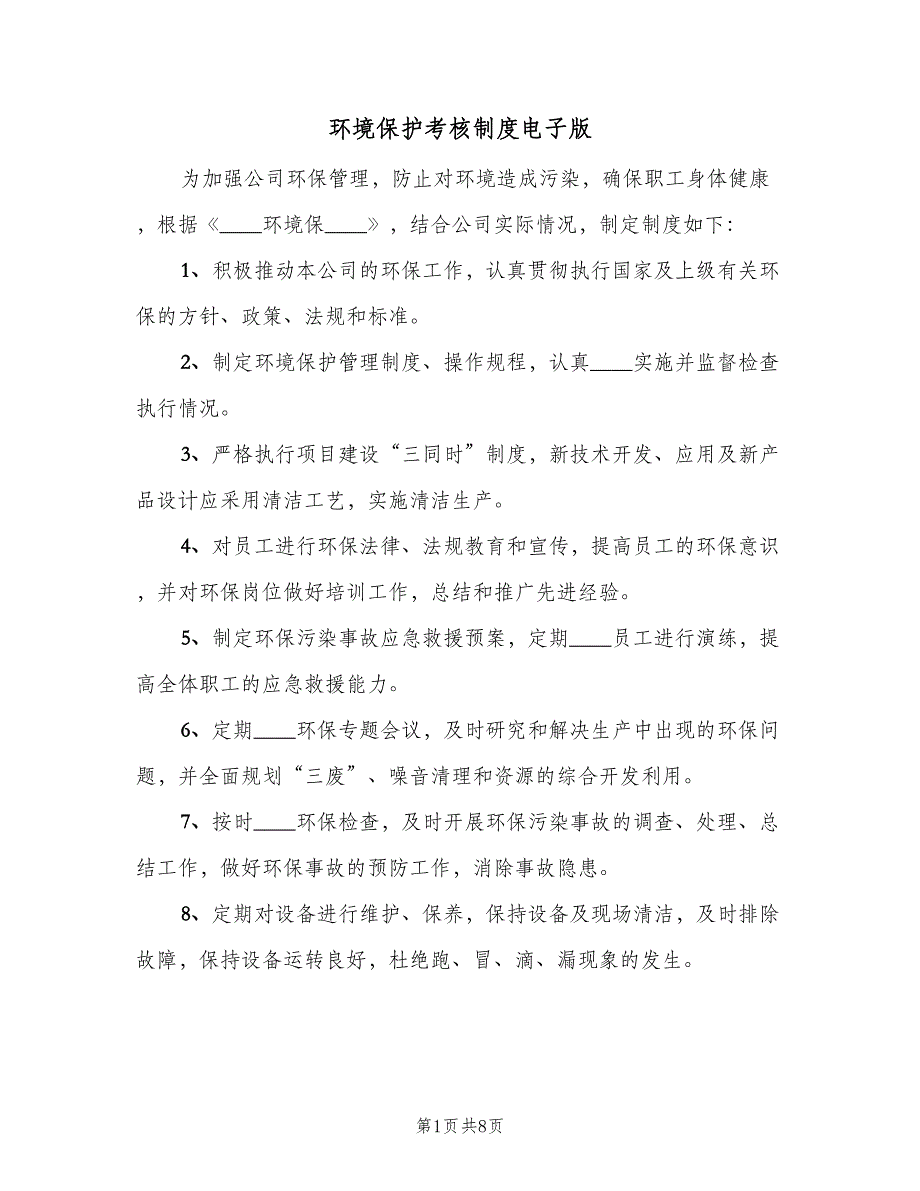 环境保护考核制度电子版
为加强公司环保管理，防止对环境造成污染，确保职工身体健康
，根据《____环境保____》，结合公司实际情况，制定制度如下：
1、积极推动本公司的环保工作，认真贯彻执行国家及上级有关环
保的方针、政策、法规和标准。
2、制定环境保护管理制度、操作规程，认真____实施并监督检查
执行情况。
3、严格执行项目建设“三同时”制度，新技术开发、应用及新产
品设计应采用清洁工艺，实施清洁生产。
4、对员工进行环保法律、法规教育和宣传，提高员工的环保意识
，并对环保岗位做好培训工作，总结和推广先进经验。
5、制定环保污染事故应急救援预案，定期____员工进行演练，提
高全体职工的应急救援能力。
6、定期____环保专题会议，及时研究和解决生产中出现的环保问
题，并全面规划“三废”、噪音清理和资源的综合开发利用。
7、按时____环保检查，及时开展环保污染事故的调查、处理、总
结工作，做好环保事故的预防工作，消除事故隐患。
8、定期对设备进行维护、保养，保持设备及现场清洁，及时排除
故障，保持设备运转良好，杜绝跑、冒、滴、漏现象的发生。
第1页 共8页